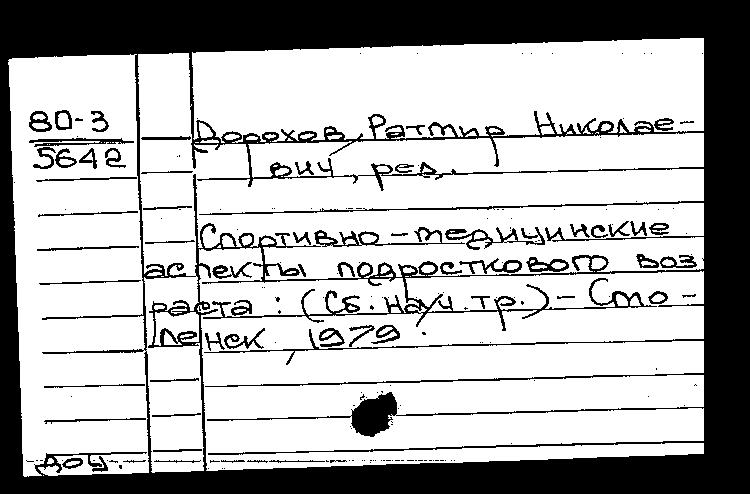 80-3
5642
Дорохов, Ратмир Николае-
вич, ред.
Спортивно-медицинские
аспекты подросткового воз
раста : (Сб. науч. тр.) - Смо-
ленск, 1979.
доц.